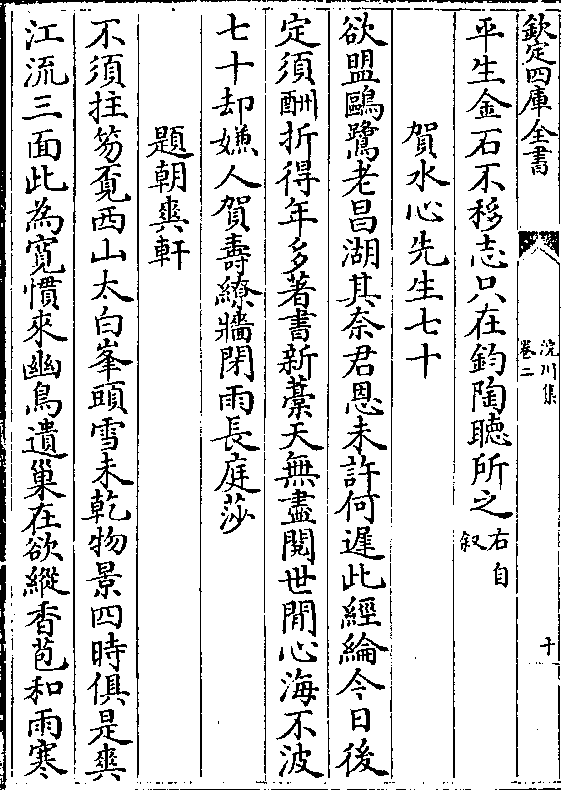 欽定四庫全書
浣川集
卷二
十
平生金石不移志只在鈞陶聽所之右自
叙
賀水心先生七十
欲盟鷗鷺老昌湖其奈君恩未許何遲此經綸今日後
定須酬折得年多著書新藁天無盡閱世閒心海不波
七十却嫌人賀壽繚牆閉雨長庭莎
題朝爽軒
不須拄笏覔西山太白峯頭雪未乾物景四時俱是爽
江流三面此為寛慣來幽鳥遺巢在欲縱香苞和雨寒